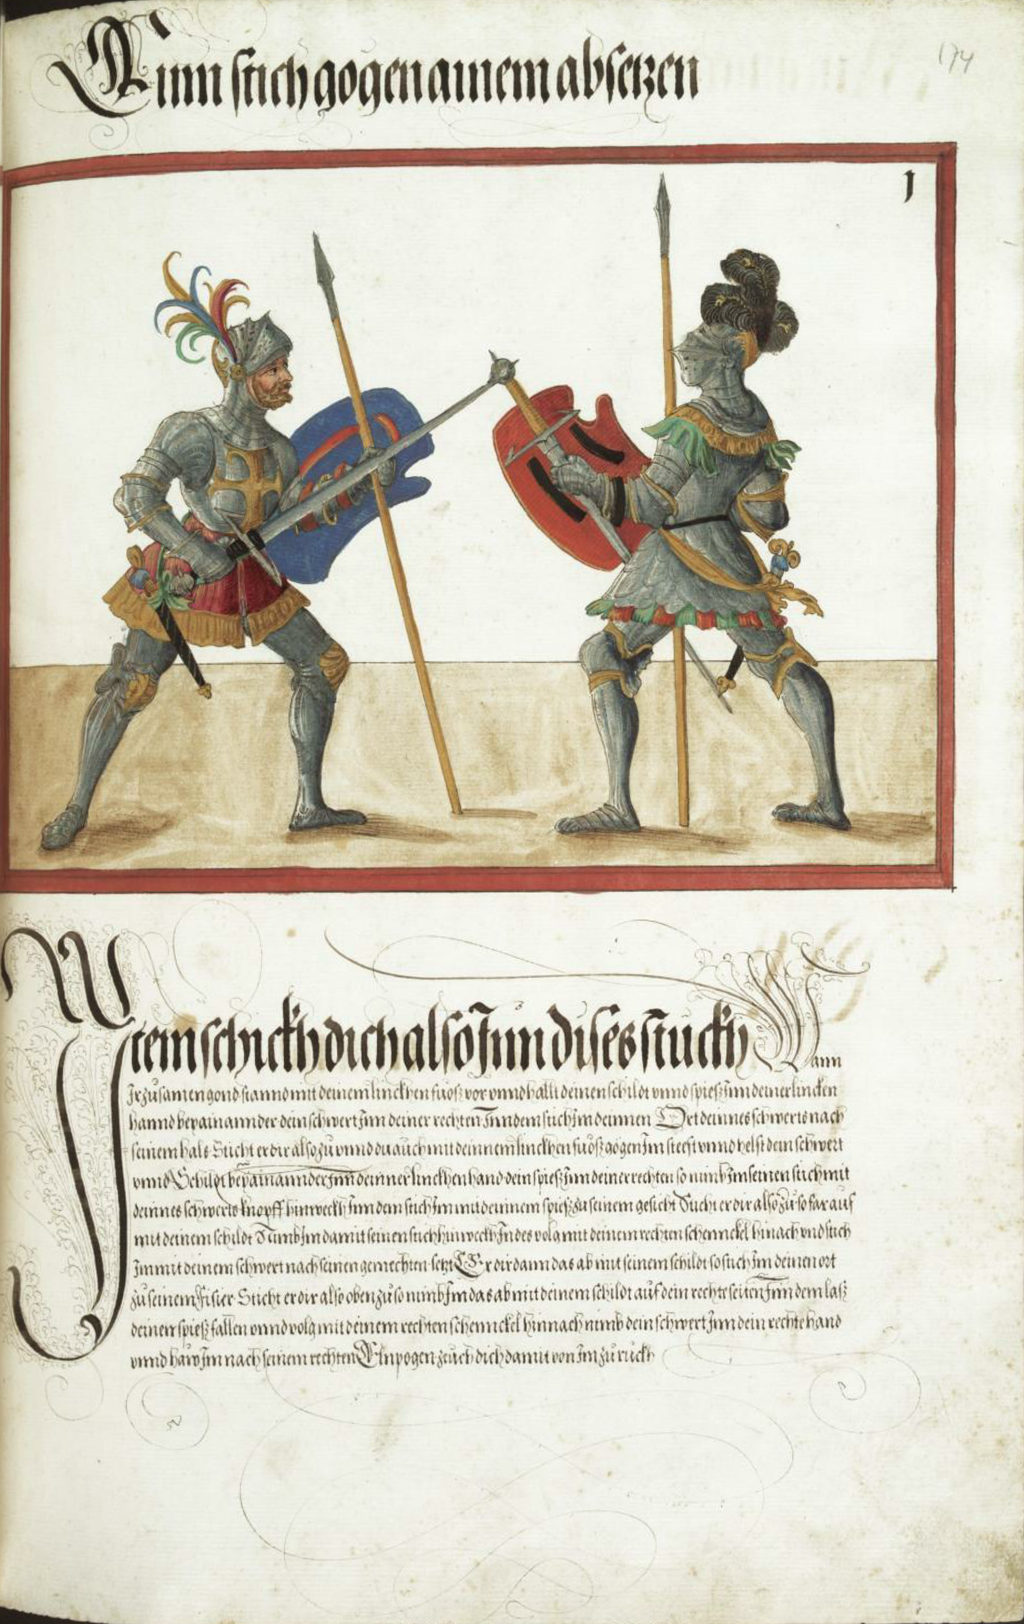 Ainn stich gögen ainem absetzen
174
1
Item schickh dich also Inn dises stuckh Wann
Ir zusamen gond stannd mit deinem linckhen fuoß vor vnnd hallt deinen schildt vnnd spieß Inn deiner lincken
hannd bey ainannder dein schwert Inn deiner rechten Inn dem stich Im deinnen Ort deinnes schwerts nach
seinem hals Sticht er dir also zu vnnd du auch mit deinnem linckhen fuoß gögen Im steest vnnd helst dein schwert
vnnd Schildt bey ainannder Inn deinner linckhen hand dein spieß Inn deiner rechten so nimb Im seinen stich mit
deinnes schwerts knopff hinweckh Inn dem stich Im mit deinnem spieß zu seinem gesicht Sticht er dir also zu so far auf
mit deinem schildt Nimb Im damit seinen stich hinweckh Indes volg mit deinem rechten schennckel hinach vnd stich
Im mit deinem schwert nach seinen gemechten setzt Er dir dann das ab mit seinem schildt so stich Im deinen ort
zu seinem Fisier Sticht er dir also oben zu so nimb Im das ab mit deinem schildt auf dein rechte seiten Inn dem laß
deinen spieß fallen vnnd volg mit deinem rechten schennckel hinnach nimb dein schwert Inn dein rechte hand
vnnd haw Im nach seinem rechten Elnpogen zeuch dich damit von Im zu ruckh